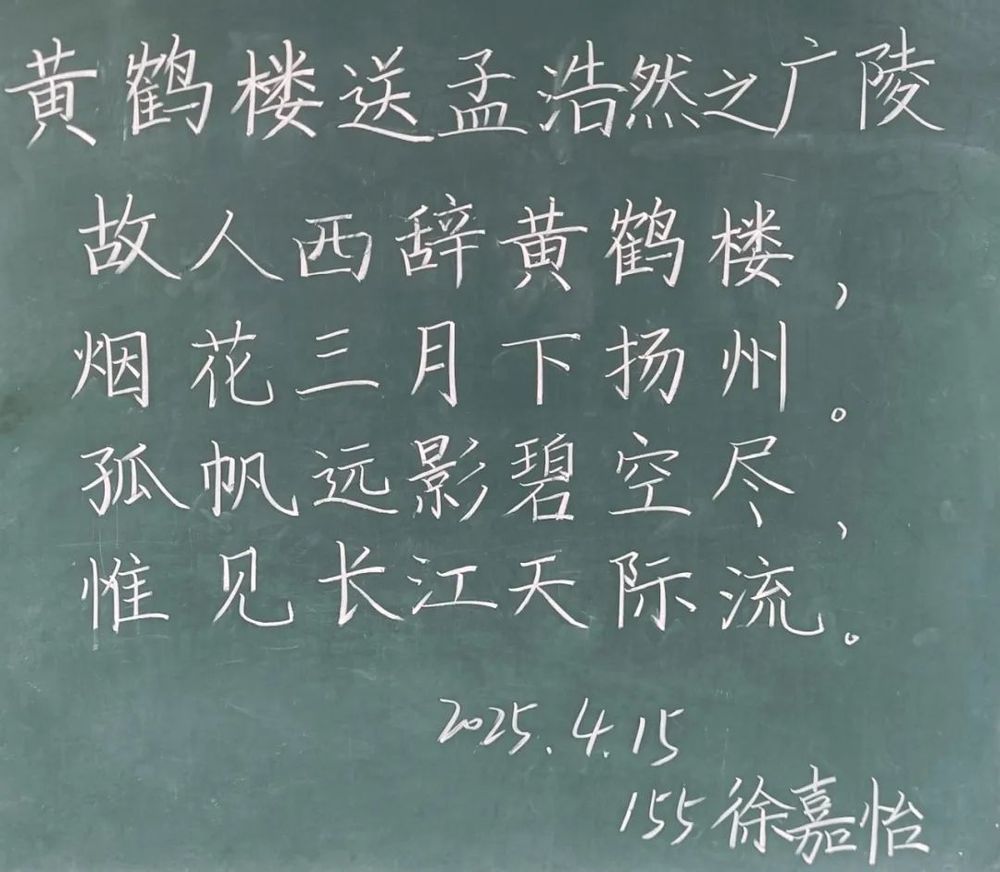 黄鹤楼送孟浩然之广陵
故人西辞黄鹤楼，
烟花三月下扬州。
孤帆远影碧空尽，
惟见长江天际流。
2025.4.15
155徐嘉怡